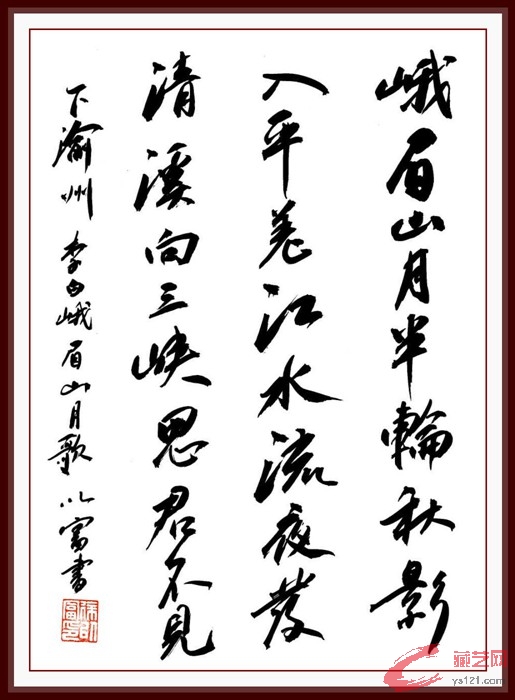 峨眉山月半轮秋影
入平羌江水流夜发
清溪向三峡思君不见
下渝州 李白峨眉山月歌 以富书
藏艺网
ys121.com